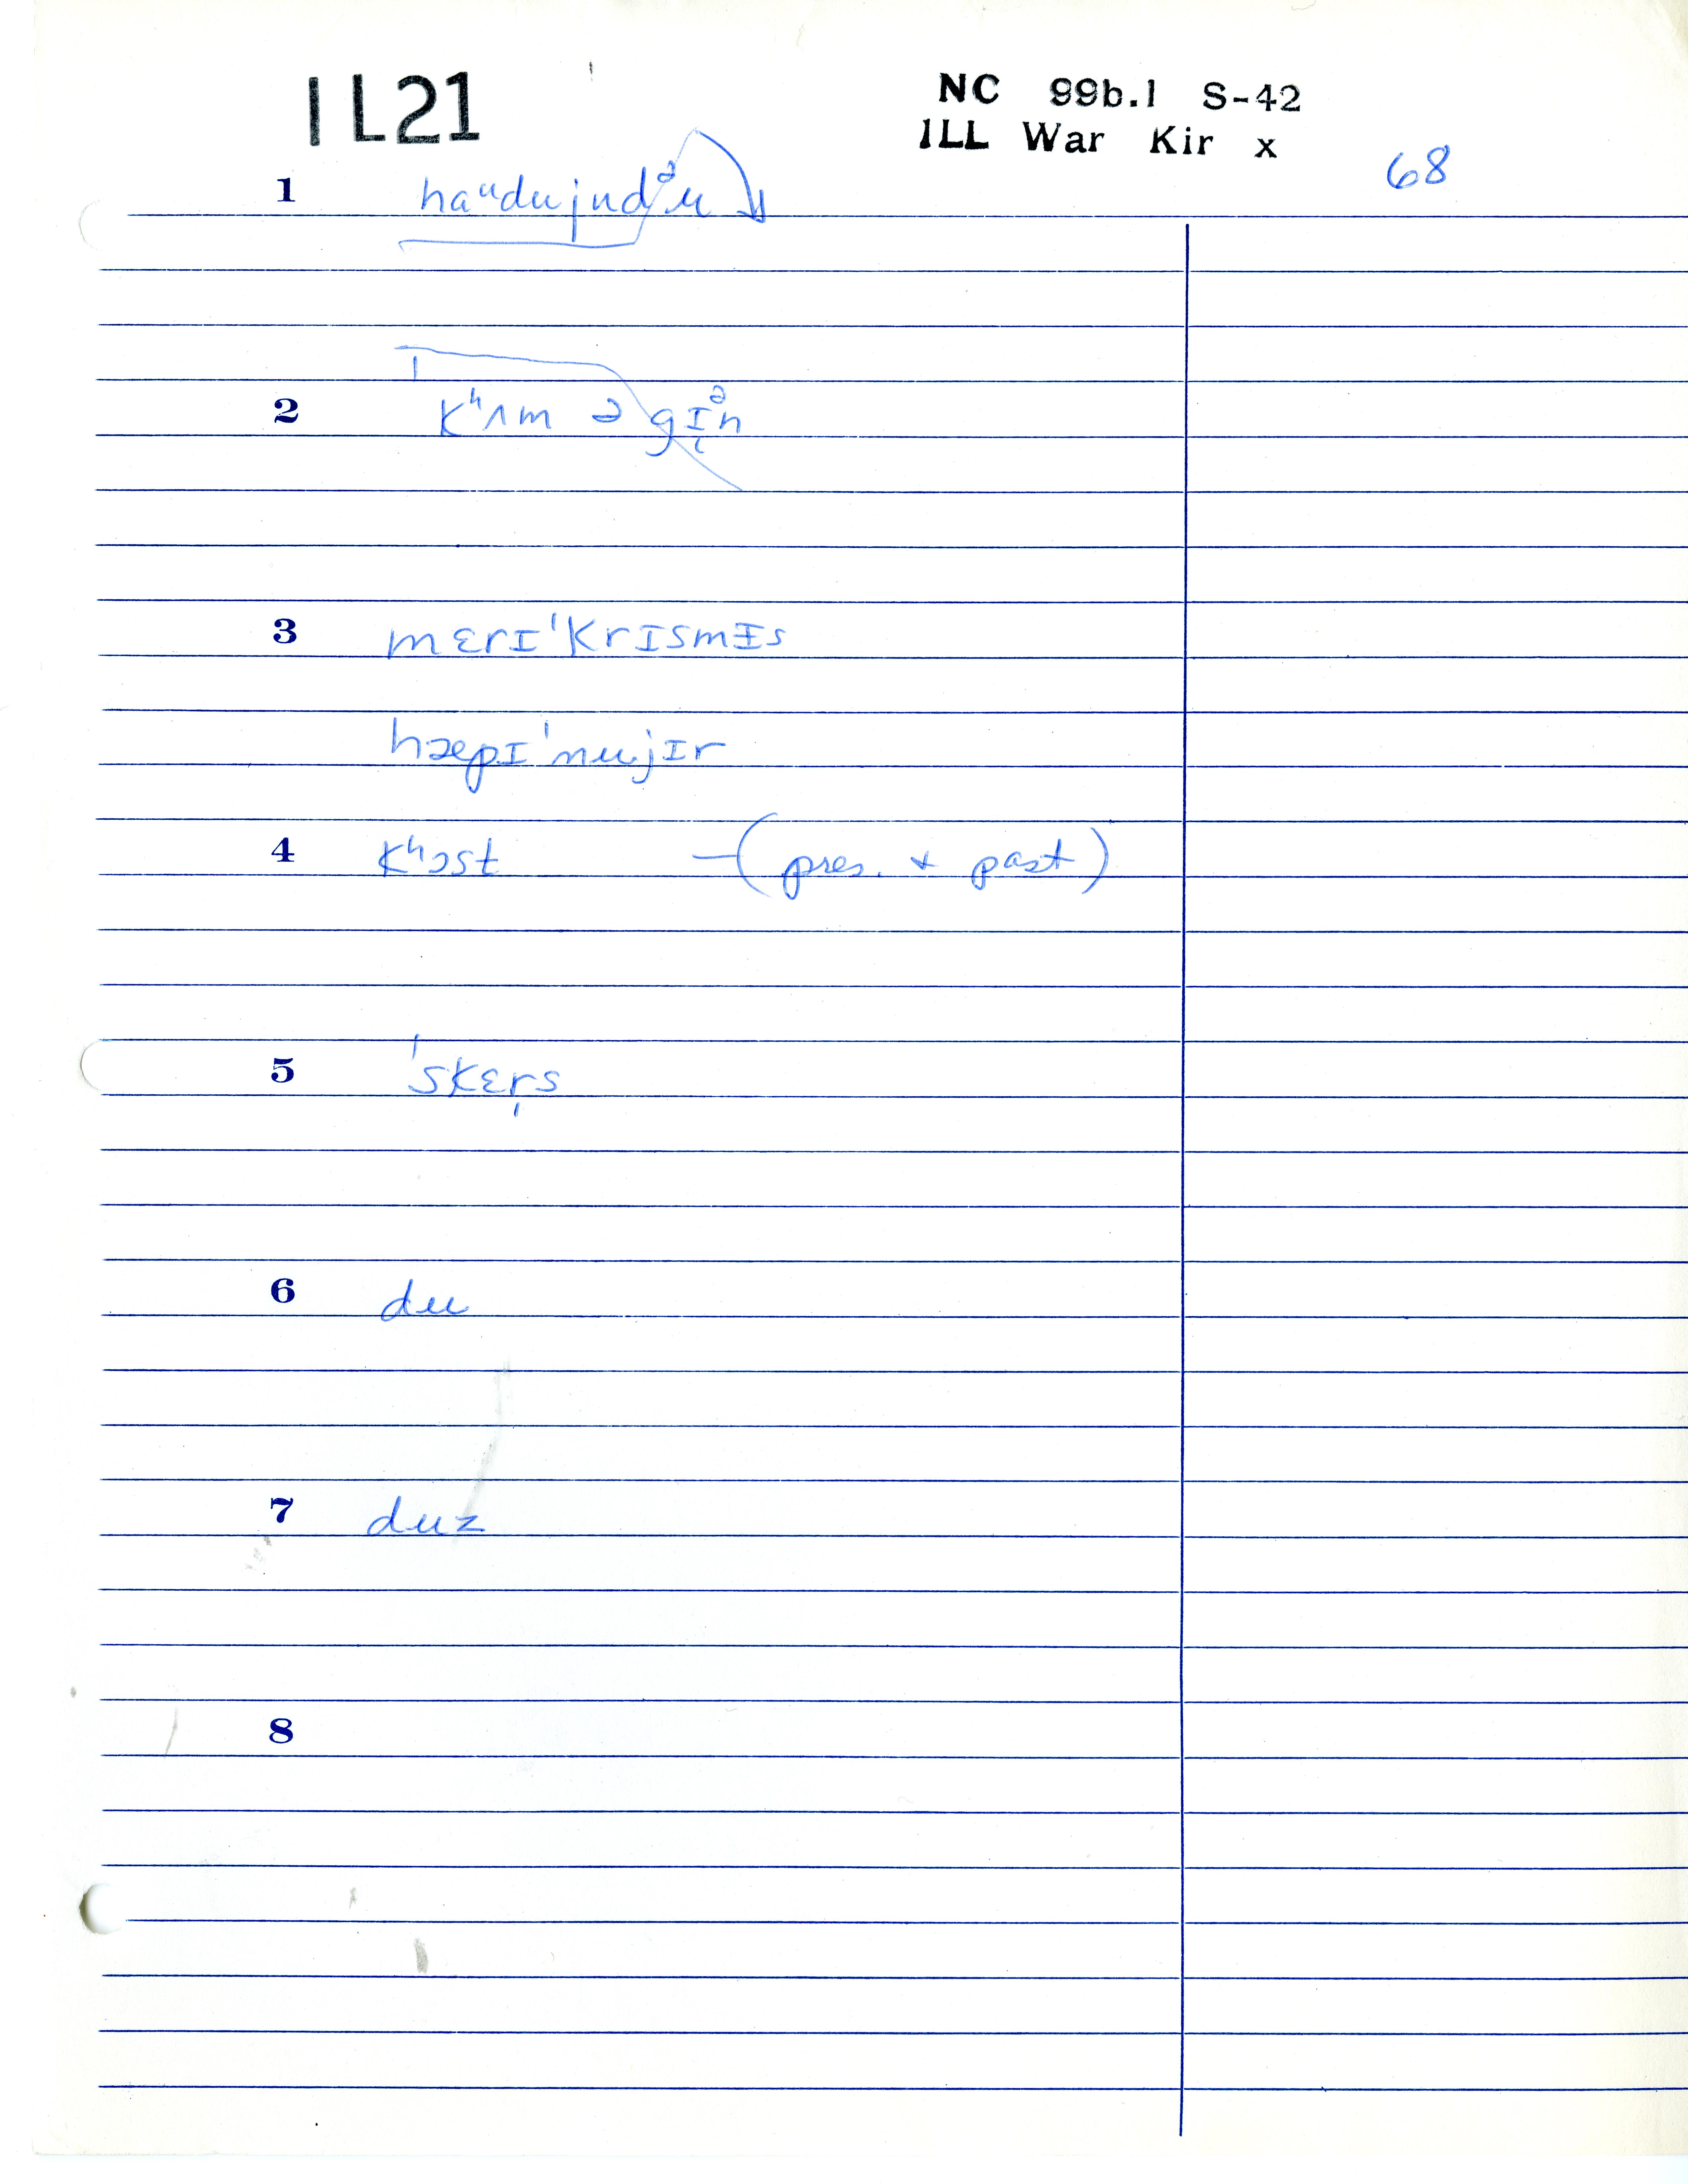 IL21
NC 99b.1 S-42
ILL War Kir x
68
1 haᵘdujudᵊu
2 kʰʌm ə gɪ̨ᵊn
3 mɛrɪˈkrɪsmɨs
hæpɪˈnujɪr
4 kʰɔst —(pres. + past)
5 ˈskɛr̩s
6 du
7 duz
8